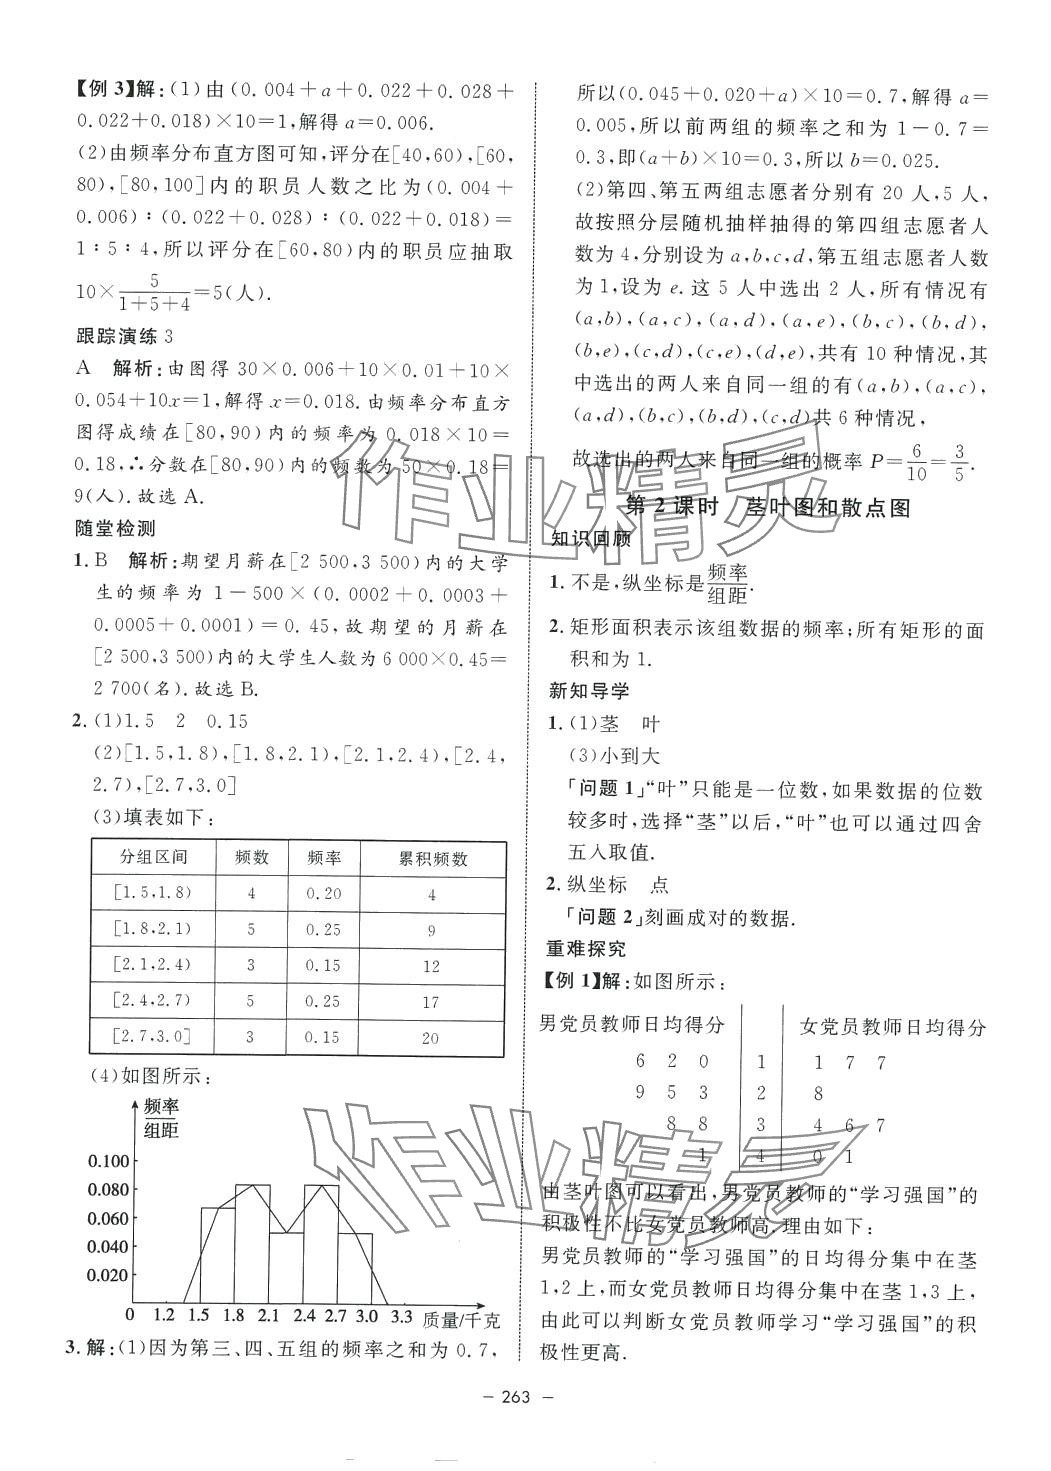 【例 3】解:(1)由(0.004+a+0.022+0.028+
0.022+0.018)×10=1,解得a=0.006.
(2)由频率分布直方图可知,评分在[40,60),[60,
80),[80,100]内的职员人数之比为(0.004+
0.006)∶(0.022+0.028)∶(0.022+0.018)=
1∶5∶4,所以评分在[60,80)内的职员应抽取
10×5/(1+5+4)=5(人).
跟踪演练 3
A 解析:由图得 30×0.006+10×0.01+10×
0.054+10x=1,解得x=0.018.由频率分布直方
图得成绩在[80,90)内的频率为 0.018×10=
0.18,∴分数在[80,90)内的频数为 50×0.18=
9(人).故选 A.
随堂检测
1. B 解析:期望月薪在[2 500,3 500)内的大学
生的频率为 1-500×(0.0002+0.0003+
0.0005+0.0001)=0.45,故期望的月薪在
[2 500,3 500)内的大学生人数为 6 000×0.45=
2 700(名).故选 B.
2. (1)1.5 2 0.15
(2)[1.5,1.8),[1.8,2.1),[2.1,2.4),[2.4,
2.7),[2.7,3.0]
(3)填表如下:
分组区间 频数 频率 累积频数
[1.5,1.8) 4 0.20 4
[1.8,2.1) 5 0.25 9
[2.1,2.4) 3 0.15 12
[2.4,2.7) 5 0.25 17
[2.7,3.0] 3 0.15 20
(4)如图所示:
频率
组距
0.100
0.080
0.060
0.040
0.020
0 1.2 1.5 1.8 2.1 2.4 2.7 3.0 3.3 质量/千克
3. 解:(1)因为第三、四、五组的频率之和为 0.7,
所以(0.045+0.020+a)×10=0.7,解得a=
0.005,所以前两组的频率之和为 1-0.7=
0.3,即(a+b)×10=0.3,所以b=0.025.
(2)第四、第五两组志愿者分别有 20 人,5 人,
故按照分层随机抽样抽得的第四组志愿者人
数为 4,分别设为a,b,c,d,第五组志愿者人数
为 1,设为e.这 5 人中选出 2 人,所有情况有
(a,b),(a,c),(a,d),(a,e),(b,c),(b,d),
(b,e),(c,d),(c,e),(d,e),共有 10 种情况,其
中选出的两人来自同一组的有(a,b),(a,c),
(a,d),(b,c),(b,d),(c,d)共 6 种情况,
故选出的两人来自同一组的概率 P=6/10=3/5.
第 2 课时 茎叶图和散点图
知识回顾
1. 不是,纵坐标是频率/组距.
2. 矩形面积表示该组数据的频率;所有矩形的面
积和为 1.
新知导学
1. (1)茎 叶
(3)小到大
「问题 1」“叶”只能是一位数,如果数据的位数
较多时,选择“茎”以后,“叶”也可以通过四舍
五入取值.
2. 纵坐标 点
「问题 2」刻画成对的数据.
重难探究
【例 1】解:如图所示:
男党员教师日均得分 女党员教师日均得分
6 2 0 1 1 7 7
9 5 3 2 8
8 8 3 4 6 7
1 4 0 1
由茎叶图可以看出,男党员教师的“学习强国”的
积极性不比女党员教师高.理由如下:
男党员教师的“学习强国”的日均得分集中在茎
1,2 上,而女党员教师日均得分集中在茎 1,3 上,
由此可以判断女党员教师学习“学习强国”的积
极性更高.
- 263 -
作业精灵
作业精灵